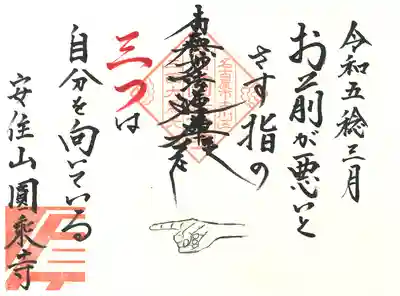 令和五稔三月
お前が悪いと
さす指の
南無妙法蓮華経
三つは
自分を向いている
安住山圓乗寺